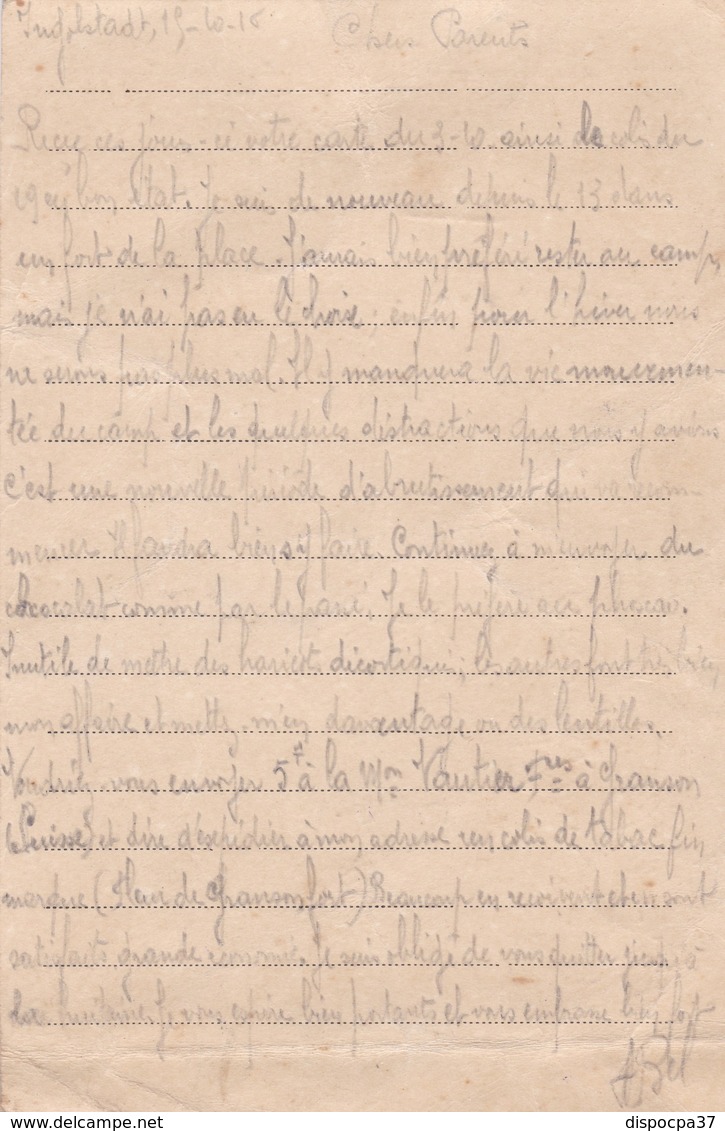 Ingolstadt, 15-10-16 Chers Parents
Reçu ces jours-ci votre carte du 3-10 ainsi le colis du
29 en bon état. Je suis de nouveau depuis le 13 dans
un fort de la place. J'aurais bien préféré rester au camp,
mais je n'ai pas eu le choix; enfin pour l'hiver nous
ne serons pas plus mal. Il y manquera la vie mouvemen-
tée du camp et les quelques distractions que nous y avions
c'est une nouvelle période d'abrutissement qui va recom-
mencer. Il faudra bien s'y faire. Continuez à m'envoyer du
chocolat comme par le passé. Je le préfère au phocao.
Inutile de mettre des haricots décortiqués; les autres font très bien
mon affaire et mettez m'en davantage ou des lentilles.
Voudriez-vous envoyer 5f à la Mon Vautier Fres à Granson
(Suisse) et dire d'expédier à mon adresse un colis de tabac fin,
marque (Fleur de Granson fort) Beaucoup en reçoivent et en sont
satisfaits, grande économie. Je suis obligé de vous quitter jusqu'à
la huitaine. Je vous espère bien portants et vous embrasse bien fort
dispocpa37
www.delcampe.net